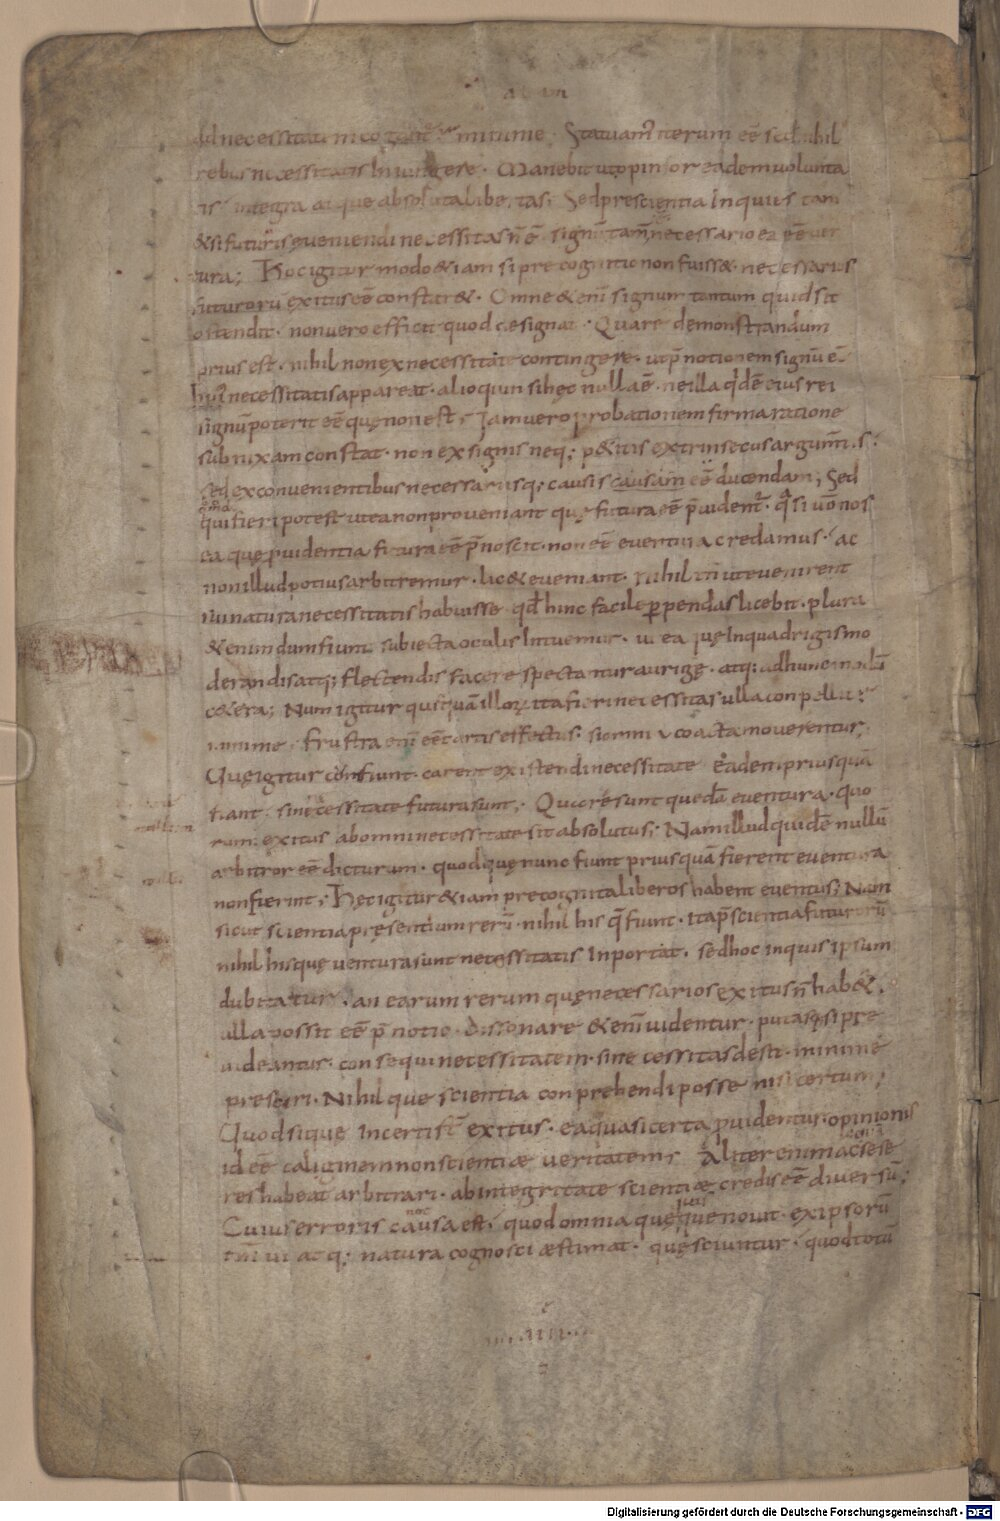 ad necessitatem cogant minime. Statuam; iterum eē sed nihil
rebus necessitatis Iniungere. Manebit ut opinor eadem volunta
tis integra atque absoluta libertas. Sed prescientia Inquies tam
& si futuris eveniendi necessitas ñ ē signū tam̄ necessario ea eē ven
tura; Hoc igitur modo &iam si precognitio non fuiss& necessarios
futurorū exitus eē constar&. Omne &enī signum tantum quid sit
ostendit. non vero efficit quod designat. Quare demonstrandum
prius est. nihil non ex necessitate contingere. ut p̄notionem signū eē
huī necessitatis appareat. alioquin si hęc nulla ē. ne illa q'dē eius rei
signū poterit eē quę non est; Iam vero probationem firma ratione
subnixam constat. non ex signis neq; p&itis extrinsecus argum̄tis.
sed ex convenientibus necessariisq; causis causam eē ducendam; Sed
qui fieri potest ut ea non proveniant quę futura eē p̄videnť. q'si v̄o nos
ea quę providentia futura eē p̄noscit. non eē eventura credamus. ac
non illud potius arbitremur. lic& eveniant. nihil tn̄ ut evenirent
sui natura necessitatis habuisse qđ hinc facile perpendas licebit. plura
&enim dum fiunt subiecta oculis Intuemur. ut ea quę In quadrigis mo
derandis atq; flectendis facere spectantur aurigę. atq; ad hunc modū
c&era; Num igitur quisquā illorū ita fieri necessitas ulla conpellit;
minime. frustra enī eē& artis effectus. si omnia coacta moverentur;
Quę igitur cū fiunt. carent existendi necessitate eadem priusquā
fiant. sine necessitate futura sunt; Quare sunt quedā eventura. quo
rum exitus ab omni necessitate sit absolutus; Nam illud quidē nullū
arbitror eē dicturum. quod quę nunc fiunt priusquā fierent eventura
non fierint; Hęc igitur &iam precognita liberos habent eventus; Nam
sicut scientia presentium rerū. nihil his q̄ fiunt. ita p̄scientia futurorū
nihil his quę ventura sunt necessitatis Inportat. sed hoc inquis ipsum
dubitatur. an earum rerum quę necessarios exitus ñ hab&.
ulla possit eē p̄notio. dissonare &enī videntur. putasq; si pre
videantur. consequi necessitatem. si necessitas desit. minime
presciri. Nihilque scientia conprehendi posse nisi certum;
Quod si quę Incerti sī exitus. ea quasi certa p̄videntur. opinionis
id eē caliginem non scientiæ veritatem; Aliter enim ac sese
res habeat arbitrari. ab integritate scientiæ credis eē diversū;
Cuius erroris causa est. quod omnia quę quisque novit. ex ipsorū
tm̄ vi atq; natura cognosci æstimat. quę sciuntur. quod totū
Digitalisierung gefördert durch die Deutsche Forschungsgemeinschaft - DFG